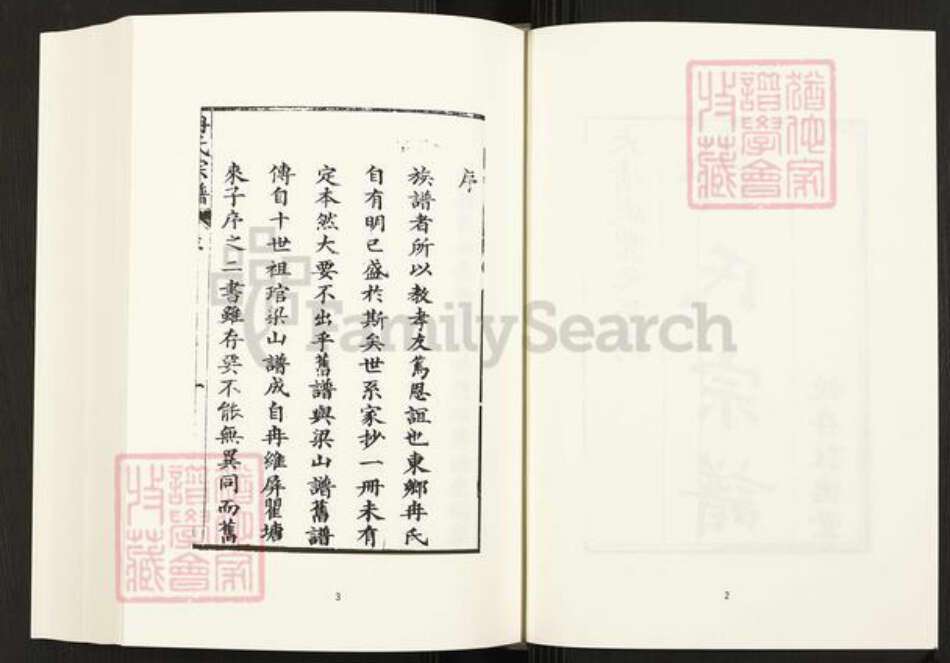 猶他家
譜學會
收藏
氏宗譜
2
序
族譜者所以教孝友篤恩誼也東鄉冉氏
自有明已盛於斯矣世系家抄一冊未有
定本然大要不出乎舊譜與梁山譜舊譜
傳自十世祖琯梁山譜成自冉維屏瞿塘
來子序之二書雖存奕不能無異同而舊
冉氏宗譜
一
3
猶他家
譜學會
收藏
FamilySearch